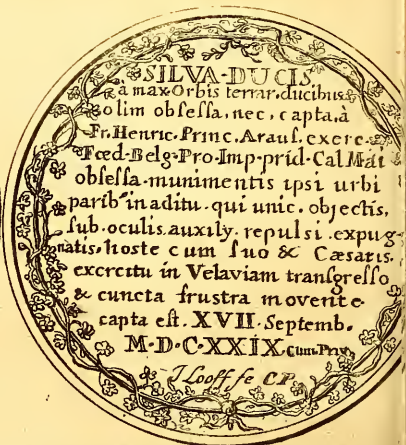 SILVA·DUCIS
à max·Orbis terrar·ducibus
olim obsessa, nec, capta, à
Fr. Henric· Princ· Araus. exerc.
Fœd· Belg· Pro· Imp· prid· Cal Maii
obsessa·munimentis ipsi urbi
parib' in aditu·qui unic·objectis,
sub·oculis·auxily·repulsi·expug
natis·hoste cum suo & Cæsaris.
exercitu in Velaviam transgresso
& cuncta frustra movente
capta est. XVII·Septemb.
M·D·C·XXIX· Cum·Priv
J Looff fe CP.